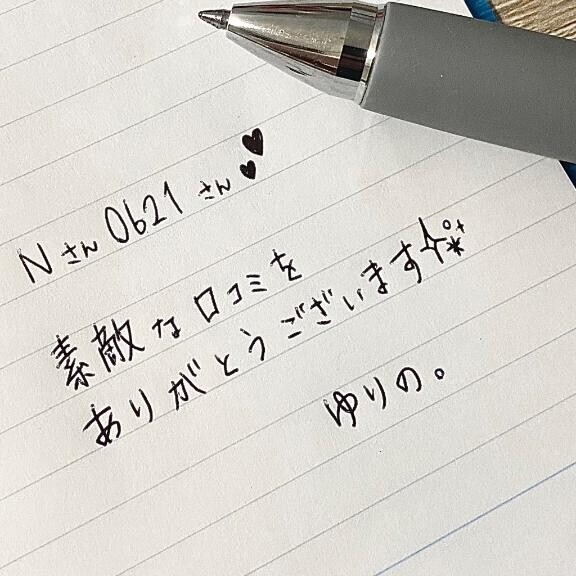 Nさん0621さん♥♥
素敵な口コミを
ありがとうございます
ゆりの。